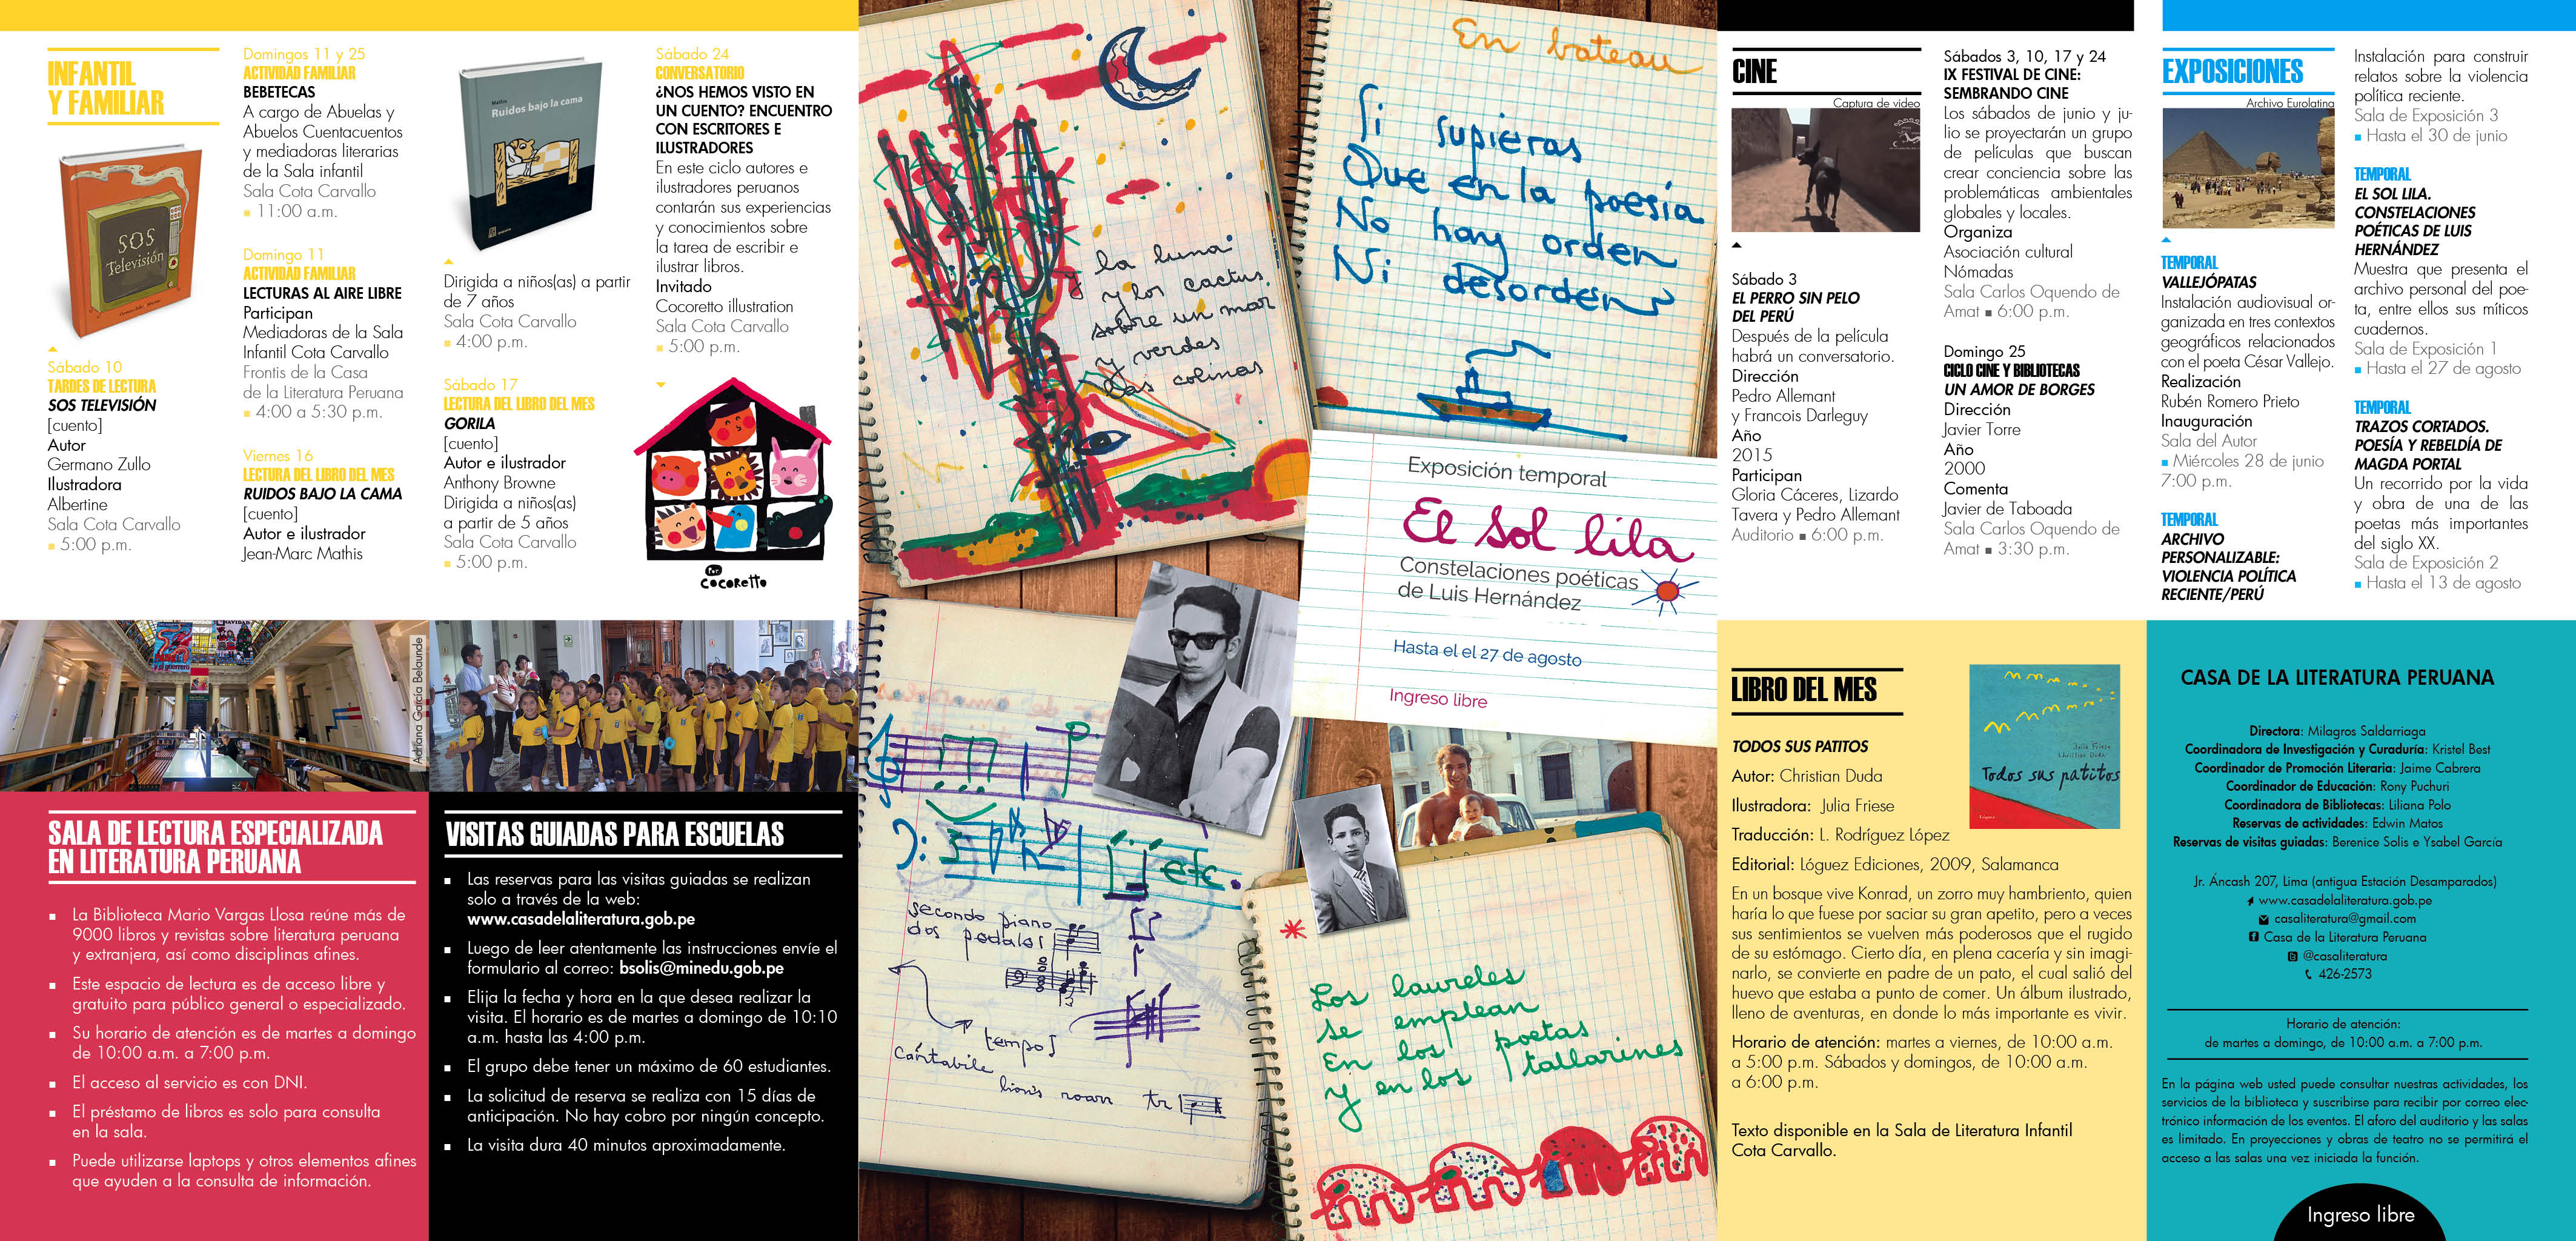 INFANTIL
Y FAMILIAR
SOS
Televisión
Sábado 10
TARDES DE LECTURA
SOS TELEVISIÓN
[cuento]
Autor
Germano Zullo
Ilustradora
Albertine
Sala Cota Carvallo
5:00 p.m.
Domingos 11 y 25
ACTIVIDAD FAMILIAR
BEBETECAS
A cargo de Abuelas y
Abuelos Cuentacuentos
y mediadoras literarias
de la Sala infantil
Sala Cota Carvallo
11:00 a.m.
Domingo 11
ACTIVIDAD FAMILIAR
LECTURAS AL AIRE LIBRE
Participan
Mediadoras de la Sala
Infantil Cota Carvallo
Frontis de la Casa
de la Literatura Peruana
4:00 a 5:30 p.m.
Viernes 16
LECTURA DEL LIBRO DEL MES
RUIDOS BAJO LA CAMA
[cuento]
Autor e ilustrador
Jean-Marc Mathis
Mathis
Ruidos bajo la cama
Dirigida a niños(as) a partir
de 7 años
Sala Cota Carvallo
4:00 p.m.
Sábado 17
LECTURA DEL LIBRO DEL MES
GORILA
[cuento]
Autor e ilustrador
Anthony Browne
Dirigida a niños(as)
a partir de 5 años
Sala Cota Carvallo
5:00 p.m.
Sábado 24
CONVERSATORIO
¿NOS HEMOS VISTO EN
UN CUENTO? ENCUENTRO
CON ESCRITORES E
ILUSTRADORES
En este ciclo autores e
ilustradores peruanos
contarán sus experiencias
y conocimientos sobre
la tarea de escribir e
ilustrar libros.
Invitado
Cocoretto illustration
Sala Cota Carvallo
5:00 p.m.
por
cocoretto
Adriana García Belaunde
SALA DE LECTURA ESPECIALIZADA
EN LITERATURA PERUANA
La Biblioteca Mario Vargas Llosa reúne más de
9000 libros y revistas sobre literatura peruana
y extranjera, así como disciplinas afines.
Este espacio de lectura es de acceso libre y
gratuito para público general o especializado.
Su horario de atención es de martes a domingo
de 10:00 a.m. a 7:00 p.m.
El acceso al servicio es con DNI.
El préstamo de libros es solo para consulta
en la sala.
Puede utilizarse laptops y otros elementos afines
que ayuden a la consulta de información.
VISITAS GUIADAS PARA ESCUELAS
Las reservas para las visitas guiadas se realizan
solo a través de la web:
www.casadelaliteratura.gob.pe
Luego de leer atentamente las instrucciones envíe el
formulario al correo: bsolis@minedu.gob.pe
Elija la fecha y hora en la que desea realizar la
visita. El horario es de martes a domingo de 10:10
a.m. hasta las 4:00 p.m.
El grupo debe tener un máximo de 60 estudiantes.
La solicitud de reserva se realiza con 15 días de
anticipación. No hay cobro por ningún concepto.
La visita dura 40 minutos aproximadamente.
la luna
y los cactus
sobre un mar
y verdes
las colinas
En bateau
Si supieras
Que en la poesía
No hay orden
Ni desorden
Exposición temporal
El Sol lila
Constelaciones poéticas
de Luis Hernández
Hasta el el 27 de agosto
Ingreso libre
etc.
secondo piano
dos pedales
tempo I
Cantabile
lion's roar tr
Los laureles
se emplean
En los poetas
Y en los tallarines
CINE
Captura de video
Sábado 3
EL PERRO SIN PELO
DEL PERÚ
Después de la película
habrá un conversatorio.
Dirección
Pedro Allemant
y Francois Darleguy
Año
2015
Participan
Gloria Cáceres, Lizardo
Tavera y Pedro Allemant
Auditorio 6:00 p.m.
Sábados 3, 10, 17 y 24
IX FESTIVAL DE CINE:
SEMBRANDO CINE
Los sábados de junio y ju-
lio se proyectarán un grupo
de películas que buscan
crear conciencia sobre las
problemáticas ambientales
globales y locales.
Organiza
Asociación cultural
Nómadas
Sala Carlos Oquendo de
Amat 6:00 p.m.
Domingo 25
CICLO CINE Y BIBLIOTECAS
UN AMOR DE BORGES
Dirección
Javier Torre
Año
2000
Comenta
Javier de Taboada
Sala Carlos Oquendo de
Amat 3:30 p.m.
EXPOSICIONES
Archivo Eurolatina
TEMPORAL
VALLEJÓPATAS
Instalación audiovisual or-
ganizada en tres contextos
geográficos relacionados
con el poeta César Vallejo.
Realización
Rubén Romero Prieto
Inauguración
Sala del Autor
Miércoles 28 de junio
7:00 p.m.
TEMPORAL
ARCHIVO
PERSONALIZABLE:
VIOLENCIA POLÍTICA
RECIENTE/PERÚ
Instalación para construir
relatos sobre la violencia
política reciente.
Sala de Exposición 3
Hasta el 30 de junio
TEMPORAL
EL SOL LILA.
CONSTELACIONES
POÉTICAS DE LUIS
HERNÁNDEZ
Muestra que presenta el
archivo personal del poe-
ta, entre ellos sus míticos
cuadernos.
Sala de Exposición 1
Hasta el 27 de agosto
TEMPORAL
TRAZOS CORTADOS.
POESÍA Y REBELDÍA DE
MAGDA PORTAL
Un recorrido por la vida
y obra de una de las
poetas más importantes
del siglo XX.
Sala de Exposición 2
Hasta el 13 de agosto
LIBRO DEL MES
Julia Friese
Christian Duda
Todos sus patitos
Lóguez
TODOS SUS PATITOS
Autor: Christian Duda
Ilustradora: Julia Friese
Traducción: L. Rodríguez López
Editorial: Lóguez Ediciones, 2009, Salamanca
En un bosque vive Konrad, un zorro muy hambriento, quien
haría lo que fuese por saciar su gran apetito, pero a veces
sus sentimientos se vuelven más poderosos que el rugido
de su estómago. Cierto día, en plena cacería y sin imagi-
narlo, se convierte en padre de un pato, el cual salió del
huevo que estaba a punto de comer. Un álbum ilustrado,
lleno de aventuras, en donde lo más importante es vivir.
Horario de atención: martes a viernes, de 10:00 a.m.
a 5:00 p.m. Sábados y domingos, de 10:00 a.m.
a 6:00 p.m.
Texto disponible en la Sala de Literatura Infantil
Cota Carvallo.
CASA DE LA LITERATURA PERUANA
Directora: Milagros Saldarriaga
Coordinadora de Investigación y Curaduría: Kristel Best
Coordinador de Promoción Literaria: Jaime Cabrera
Coordinador de Educación: Rony Puchuri
Coordinadora de Bibliotecas: Liliana Polo
Reservas de actividades: Edwin Matos
Reservas de visitas guiadas: Berenice Solis e Ysabel García
Jr. Áncash 207, Lima (antigua Estación Desamparados)
www.casadelaliteratura.gob.pe
casaliteratura@gmail.com
Casa de la Literatura Peruana
@casaliteratura
426-2573
Horario de atención:
de martes a domingo, de 10:00 a.m. a 7:00 p.m.
En la página web usted puede consultar nuestras actividades, los
servicios de la biblioteca y suscribirse para recibir por correo elec-
trónico información de los eventos. El aforo del auditorio y las salas
es limitado. En proyecciones y obras de teatro no se permitirá el
acceso a las salas una vez iniciada la función.
Ingreso libre